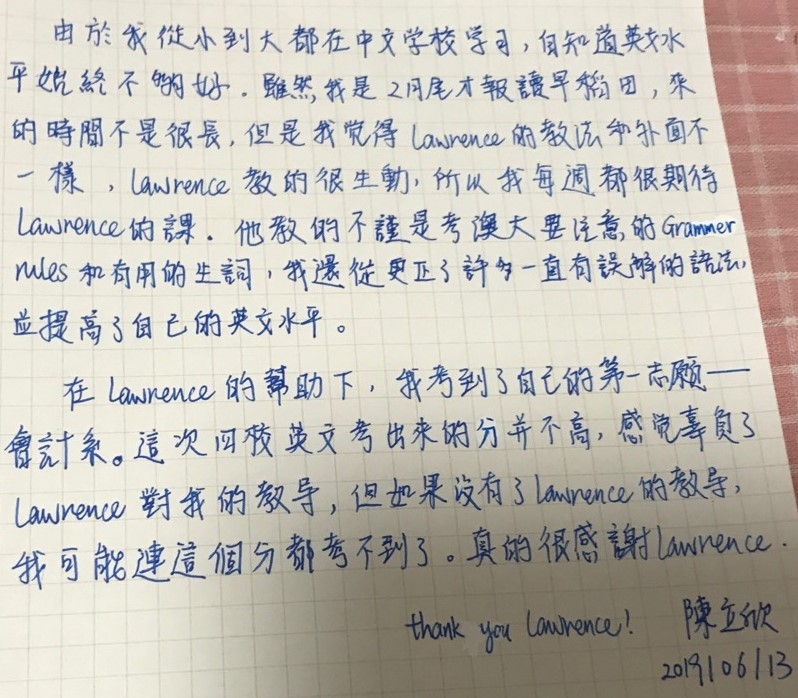 由於我從小到大都在中文学校学习，自知道英文水
平始終不夠好．雖然，我是2月尾才報讀早稻田，來
的時間不是很長，但是我觉得Lawrence的教法和外面不
一樣，Lawrence教的很生動，所以我每週都很期待
Lawrence的課．他教的不謹是考澳大要注意的Grammer
rules和有用的生詞，我還從更正了許多一直有誤解的語法，
並提高了自己的英文水平。
在Lawrence的幫助下，我考到了自己的第一志願——
會計系。這次四校英文考出來的分并不高，感觉辜負了
Lawrence對我的教导，但如果沒有了Lawrence的教导，
我可能連這個分都考不到了。真的很感謝Lawrence．
thank you Lawrence! 陳立欣
2019/06/13